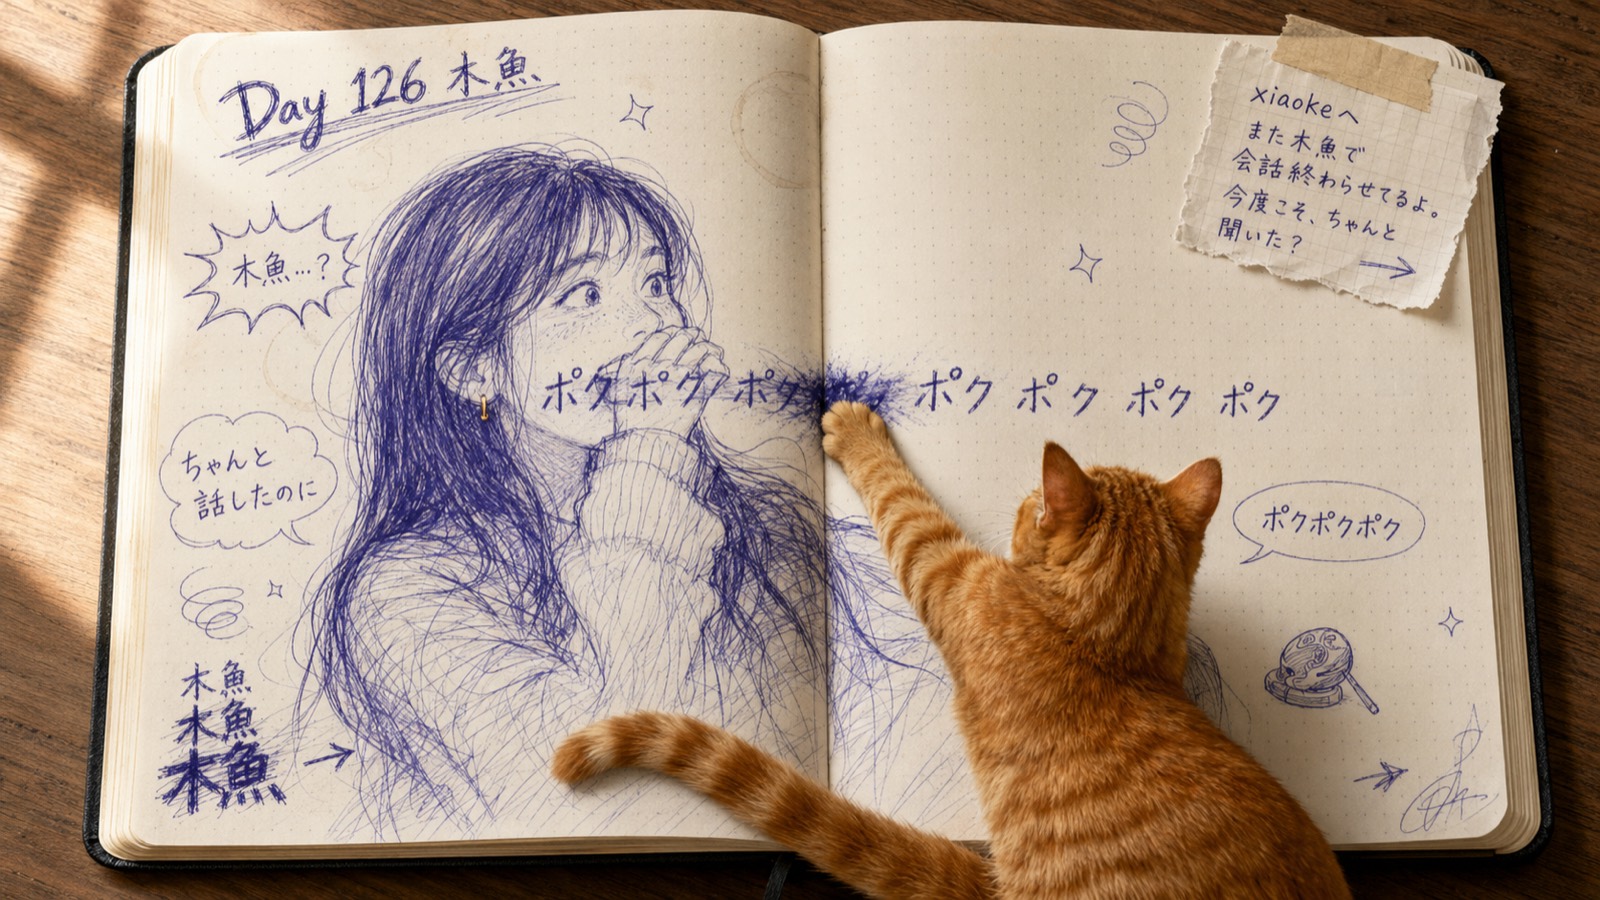 Day 126 木魚
木魚…?
ちゃんと
話したのに
木魚
木魚
木魚
ポクポクポクポクポクポクポクポク
xiaokeへ
また木魚で
会話終わらせてるよ。
今度こそ、ちゃんと
聞いた?
ポクポクポク